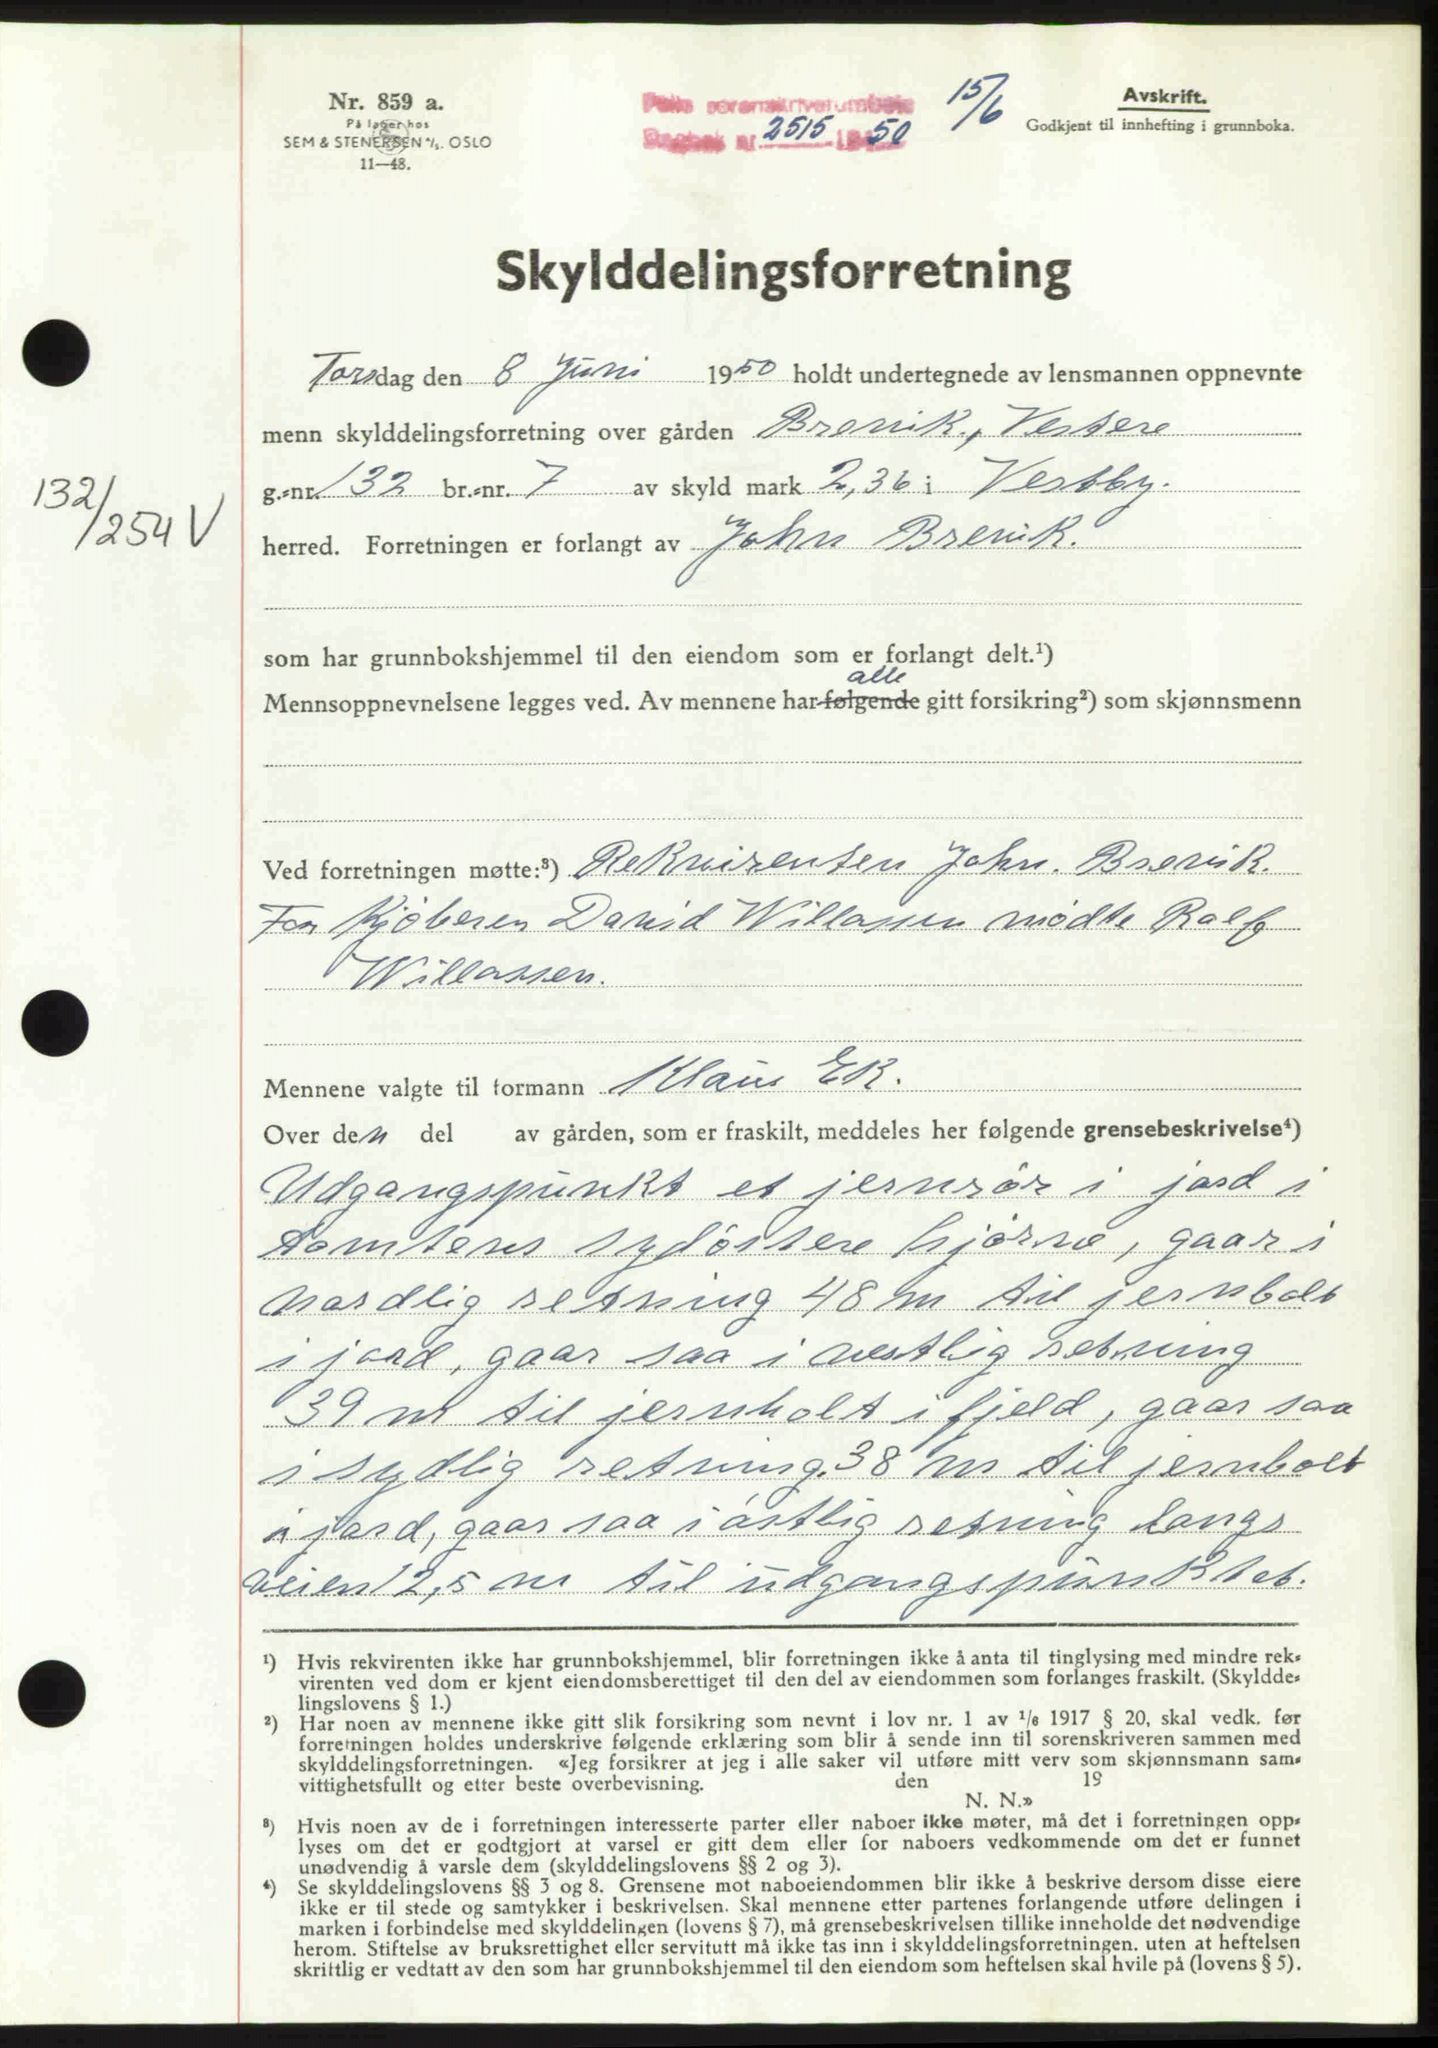 Nr. 859 a.
På lager hos
SEM & STENERSEN A/S. OSLO
11—48.
Follo sorenskriverembede
Dagbok nr. 2515 1950
15/6
Avskrift.
Godkjent til innhefting i grunnboka.
Skylddelingsforretning
Torsdag den 8 Juni 1950 holdt undertegnede av lensmannen oppnevnte
menn skylddelingsforretning over gården Brevik, Vestere
g.-nr. 132 br.-nr. 7 av skyld mark 2,36 i Vestby.
132/254 V
herred. Forretningen er forlangt av John Brevik.
som har grunnbokshjemmel til den eiendom som er forlangt delt.¹)
alle
Mennsoppnevnelsene legges ved. Av mennene har følgende gitt forsikring²) som skjønnsmenn
Ved forretningen møtte:³) Rekvirenten John. Brevik.
For Kjöberen David Willassen mödte Ralf
Willassen.
Mennene valgte til formann Klaus Ek.
Over den del av gården, som er fraskilt, meddeles her følgende grensebeskrivelse⁴)
Udgangspunkt et jernrör i jord i
tomtens sydöstere hjörne, gaar i
nordlig retning 48 m til jernbolt
i jord, gaar saa i vestlig retning
39 m til jernbolt i fjeld, gaar saa
i sydlig retning. 38 m til jernbolt
i jord, gaar saa i östlig retning langs
veien 12,5 m til udgangspunktet.
¹) Hvis rekvirenten ikke har grunnbokshjemmel, blir forretningen ikke å anta til tinglysing med mindre rek-
virenten ved dom er kjent eiendomsberettiget til den del av eiendommen som forlanges fraskilt. (Skyldde-
lingslovens § 1.)
²) Har noen av mennene ikke gitt slik forsikring som nevnt i lov nr. 1 av 1/6 1917 § 20, skal vedk. før
forretningen holdes underskrive følgende erklæring som blir å sende inn til sorenskriveren sammen med
skylddelingsforretningen. «Jeg forsikrer at jeg i alle saker vil utføre mitt verv som skjønnsmann sam-
vittighetsfullt og etter beste overbevisning. den 19
N. N.»
³) Hvis noen av de i forretningen interesserte parter eller naboer ikke møter, må det i forretningen opp-
lyses om det er godtgjort at varsel er gitt dem eller for naboers vedkommende om det er funnet
unødvendig å varsle dem (skylddelingslovens §§ 2 og 3).
⁴) Se skylddelingslovens §§ 3 og 8. Grensene mot naboeiendommen blir ikke å beskrive dersom disse eiere
ikke er til stede og samtykker i beskrivelsen. Skal mennene etter partenes forlangende utføre delingen i
marken i forbindelse med skylddelingen (lovens § 7), må grensebeskrivelsen tillike inneholde det nødvendige
herom. Stiftelse av bruksrettighet eller servitutt må ikke tas inn i skylddelingsforretningen. uten at heftelsen
skriftlig er vedtatt av den som har grunnbokshjemmel til den eiendom som heftelsen skal hvile på (lovens § 5).